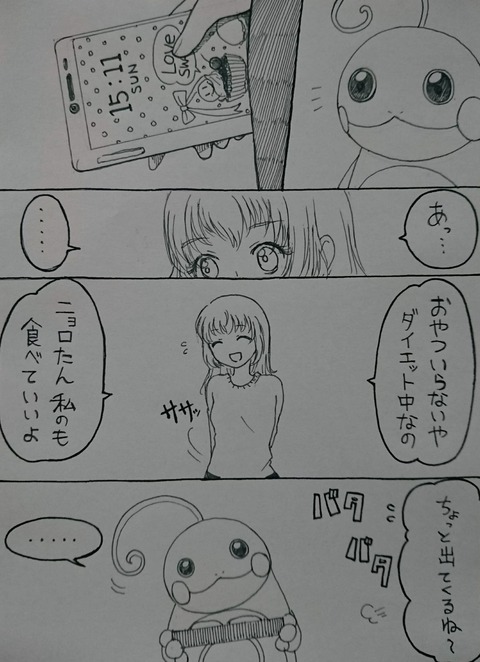 15:11
SUN
Love
Sw
あっ…
……
おやついらないや
ダイエット中なの
ニョロたん私のも
食べていいよ
ササッ
ちょっと出てくるね〜
バタ
バタ
……